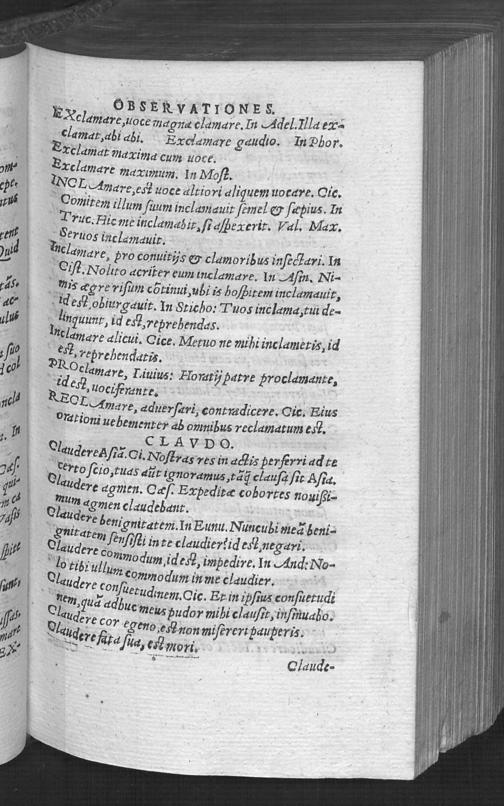 OBSERVATIONES.
EXclamare, uoce magna clamare. In Adel. Illa ex-
clamat, abi abi. Exclamare gaudio. In Phor.
Exclamat maxima cum uoce.
Exclamare maximum. In Most.
INCLAmare, est uoce altiori aliquem uocare. Cic.
Comitem illum suum inclamauit semel & sæpius. In
Truc. Hic me inclamabit, si aspexerit. Val. Max.
Seruos inclamauit.
Inclamare, pro conuitijs & clamoribus insectari. In
Cist. Nolito acriter eum inclamare. In Asin. Ni-
mis ægre risum cõtinui, ubi is hospitem inclamauit,
id est, obiurgauit. In Sticho: Tuos inclama, tui de-
linquunt, id est, reprehendas.
Inclamare alicui. Cice. Metuo ne mihi inclametis, id
est, reprehendatis.
PROclamare, Liuius: Horatij patre proclamante,
id est, uociferante.
RECLAmare, aduersari, contradicere. Cic. Eius
orationi uehementer ab omnibus reclamatum est.
CLAVDO.
Claudere Asiã. Ci. Nostras res in actis perferri ad te
certo scio, tuas aũt ignoramus, tãq̃ clausa sit Asia.
Claudere agmen. Cæs. Expeditæ cohortes nouißi-
mum agmen claudebant.
Claudere benignitatem. In Eunu. Nuncubi meã beni-
gnitatem sensisti in te claudier? id est, negari.
Claudere commodum, id est, impedire. In And: No-
lo tibi ullum commodum in me claudier.
Claudere consuetudinem. Cic. Et in ipsius consuetudi
nem, quã adhuc meus pudor mihi clausit, insinuabo.
Claudere cor egeno, est non misereri pauperis.
Claudere fata sua, est mori.
Claude-
om-
cepe,
itus
tent
Quid
tãs.
ac-
ulus
t suo
d col
ncla
In
Cæs.
qui-
Vasis
mare
EX-